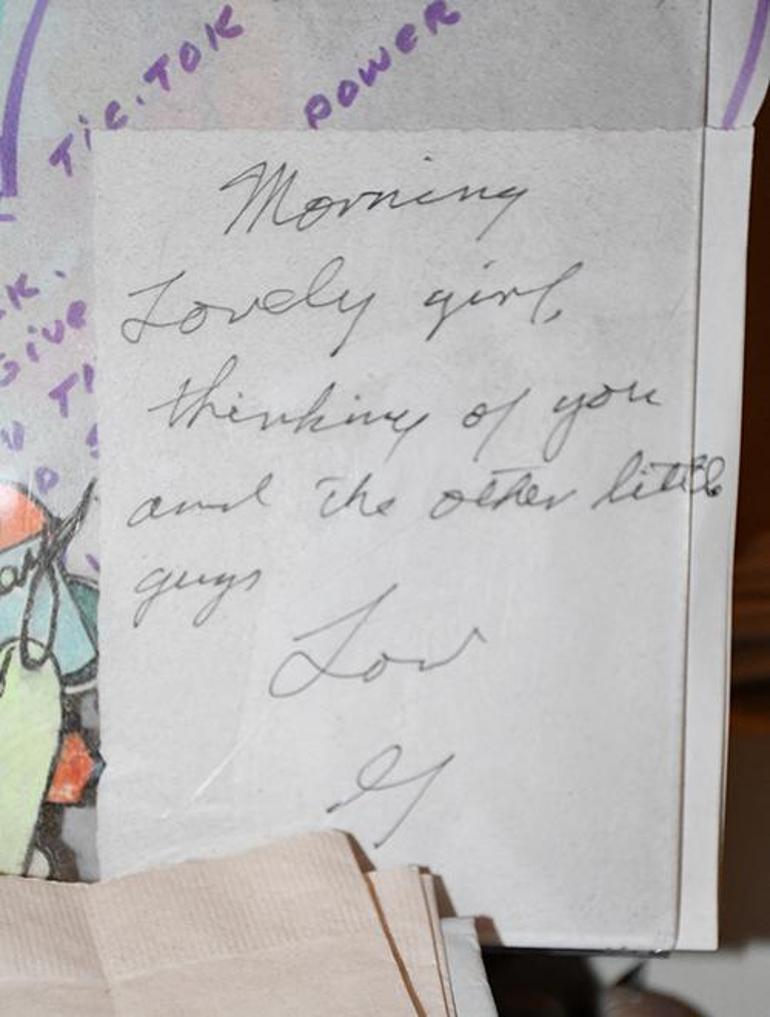 TIC.TOK
POWER
Morning
Lovely girl,
thinking of you
and the other little
guys
Lov
G